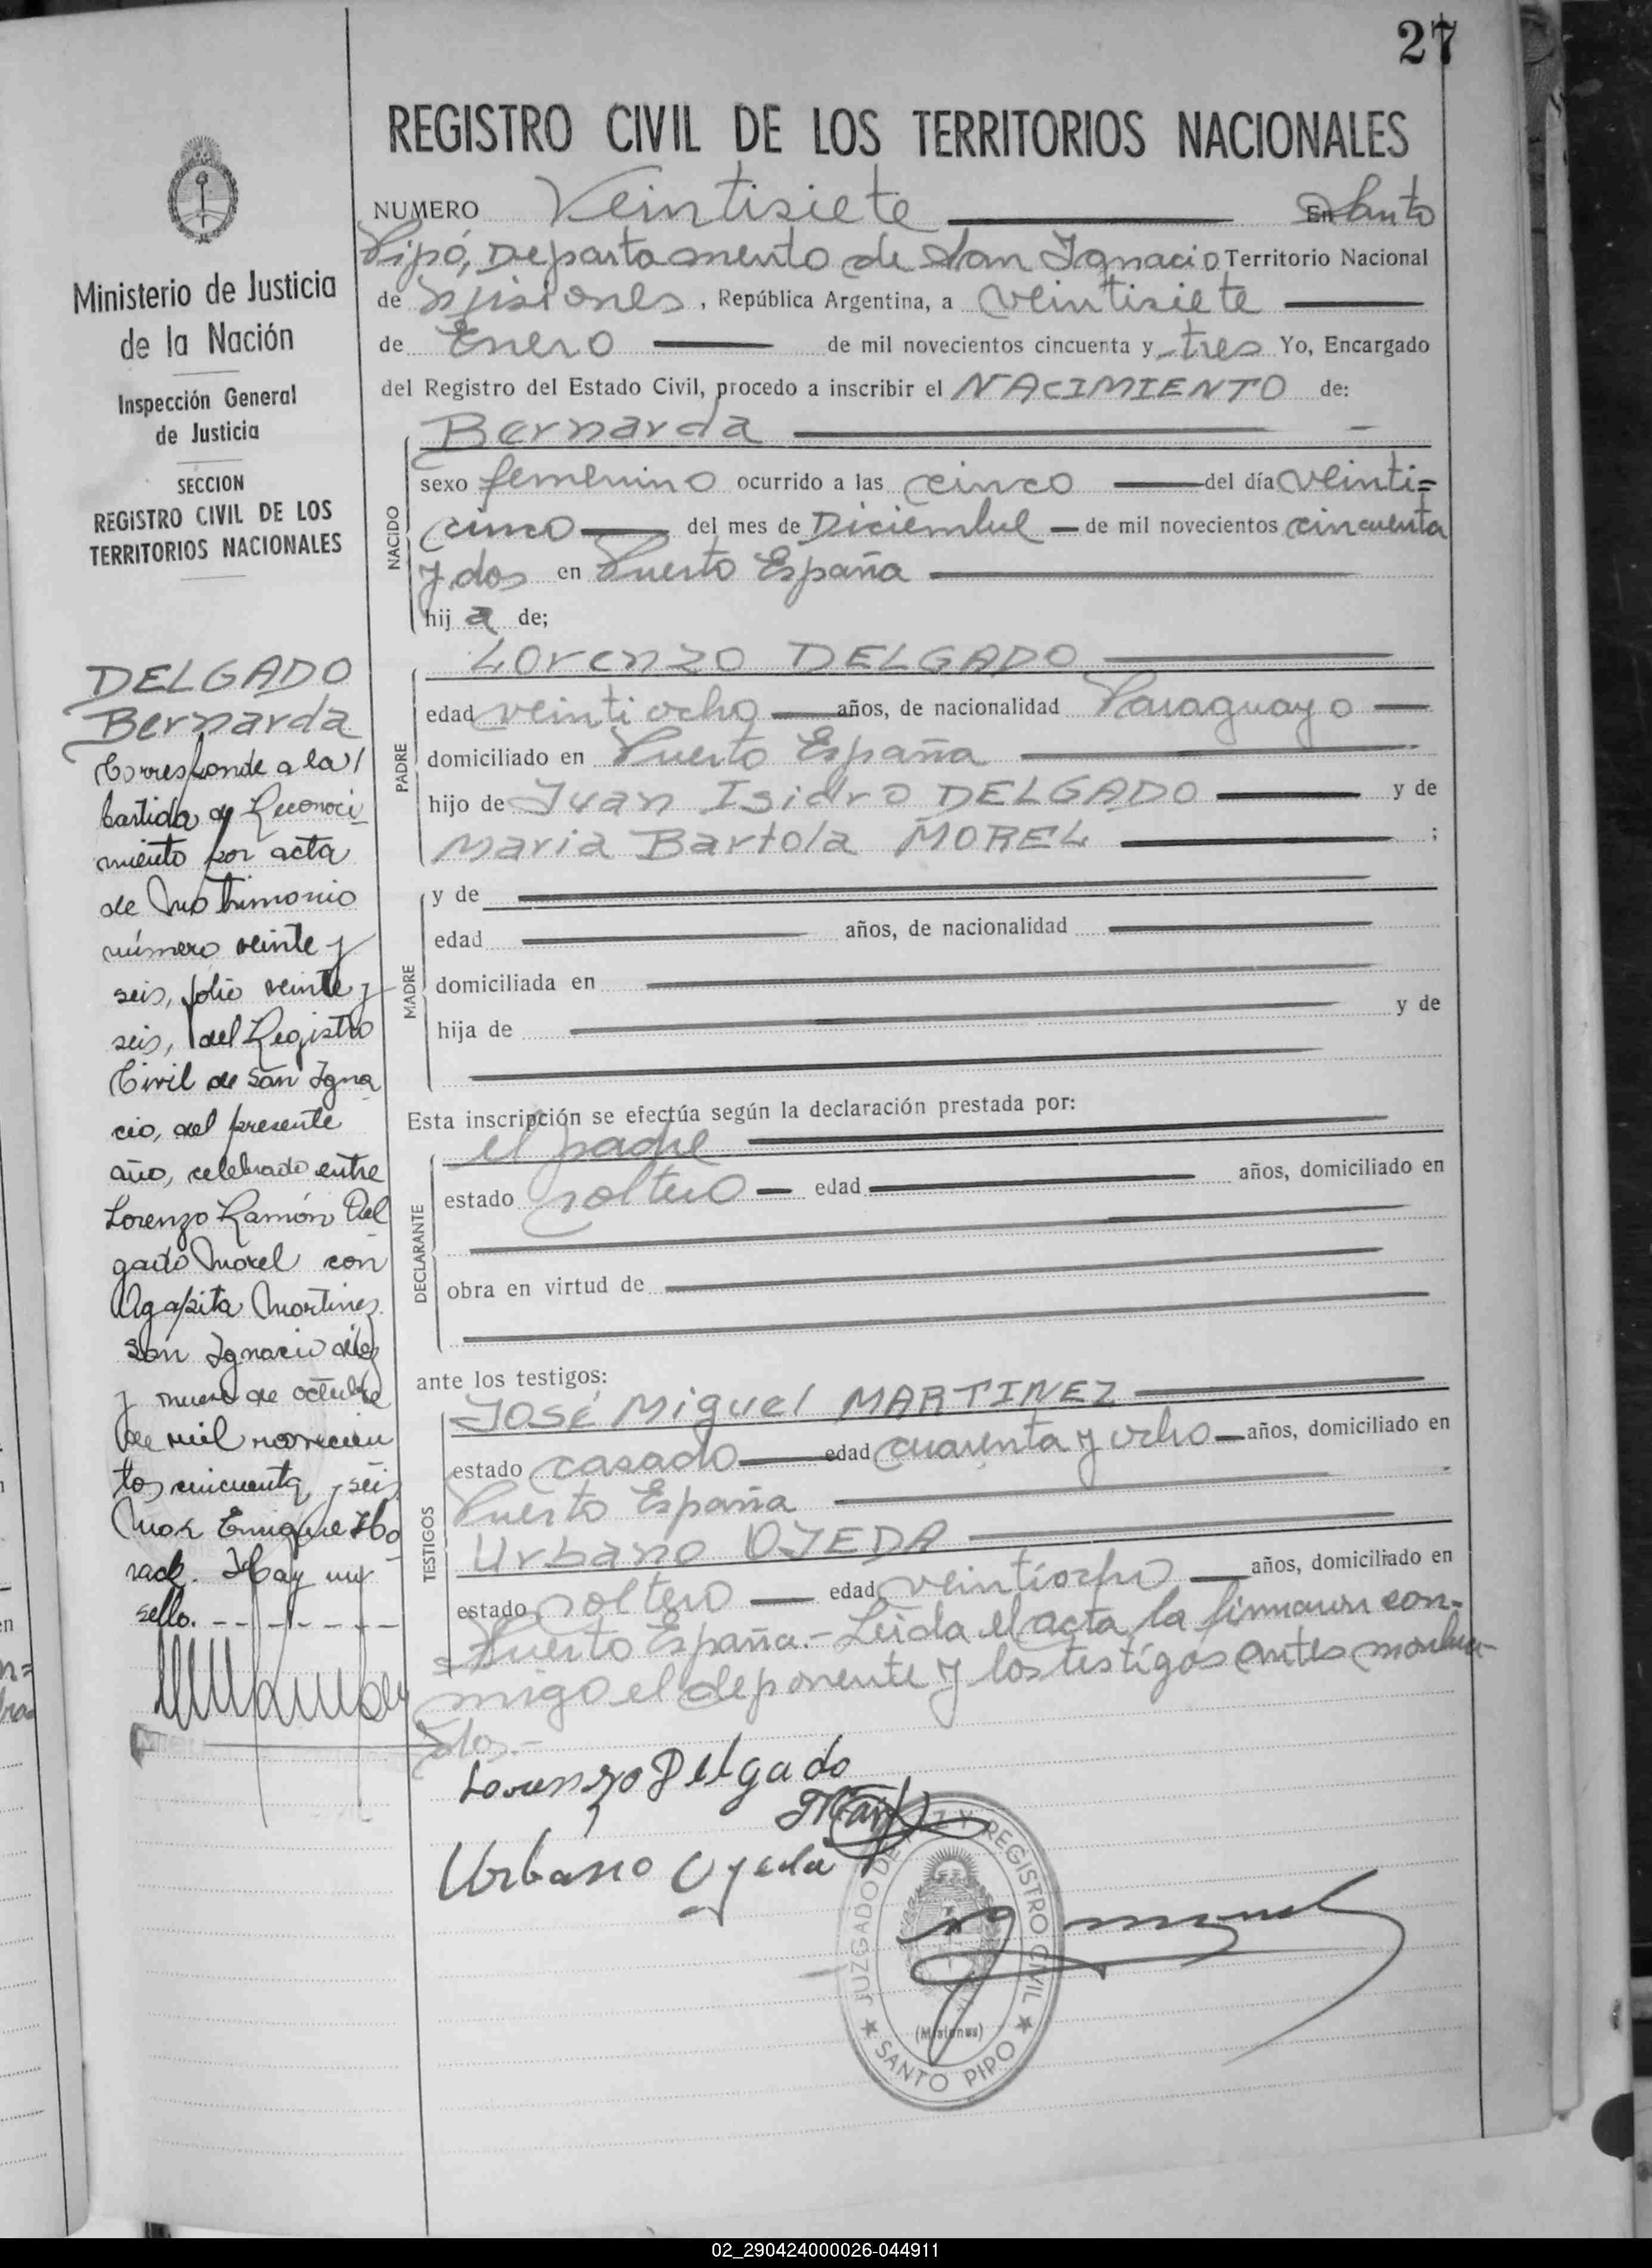 27
REGISTRO CIVIL DE LOS TERRITORIOS NACIONALES
NUMERO Veintisiete En Santo
Pipó, Departamento de San Ignacio Territorio Nacional
de Misiones, República Argentina, a veintisiete
de Enero de mil novecientos cincuenta y tres Yo, Encargado
del Registro del Estado Civil, procedo a inscribir el NACIMIENTO de:
Ministerio de Justicia
de la Nación
Inspección General
de Justicia
SECCION
REGISTRO CIVIL DE LOS
TERRITORIOS NACIONALES
NACIDO
Bernarda
sexo femenino ocurrido a las cinco del día veinti=
cinco del mes de Diciembre de mil novecientos cincuenta
y dos en Puerto España
hij a de;
PADRE
Lorenzo DELGADO
edad veintiocho años, de nacionalidad Paraguayo
domiciliado en Puerto España
hijo de Juan Isidro DELGADO y de
Maria Bartola MOREL ;
MADRE
y de
edad años, de nacionalidad
domiciliada en
hija de y de
Esta inscripción se efectúa según la declaración prestada por:
DECLARANTE
el padre
estado soltero edad años, domiciliado en
obra en virtud de
ante los testigos:
TESTIGOS
José Miguel MARTINEZ
estado casado edad cuarenta y ocho años, domiciliado en
Puerto España
Urbano OJEDA
estado soltero edad veintiocho años, domiciliado en
Puerto España.- Leida el acta, la firmaron con-
migo el deponente y los testigos antes
dos.-
Lorenzo Delgado
Urbano Ojeda
JUZGADO DE PAZ Y REGISTRO CIVIL
(Misiones)
SANTO PIPO
DELGADO
Bernarda
Corresponde a la
partida de Reconoci
miento por acta
de Matrimonio
número veinte y
seis, folio veinte y
seis, del Registro
Civil de San Igna
cio, del presente
año, celebrado entre
Lorenzo Ramón Del
gado Morel con
Agapita Martinez.
San Ignacio diez
y nueve de octubre
de mil novecien
tos cincuenta y seis
Max Enrique Ho
rack. Hay un
sello.
02_290424000026-044911